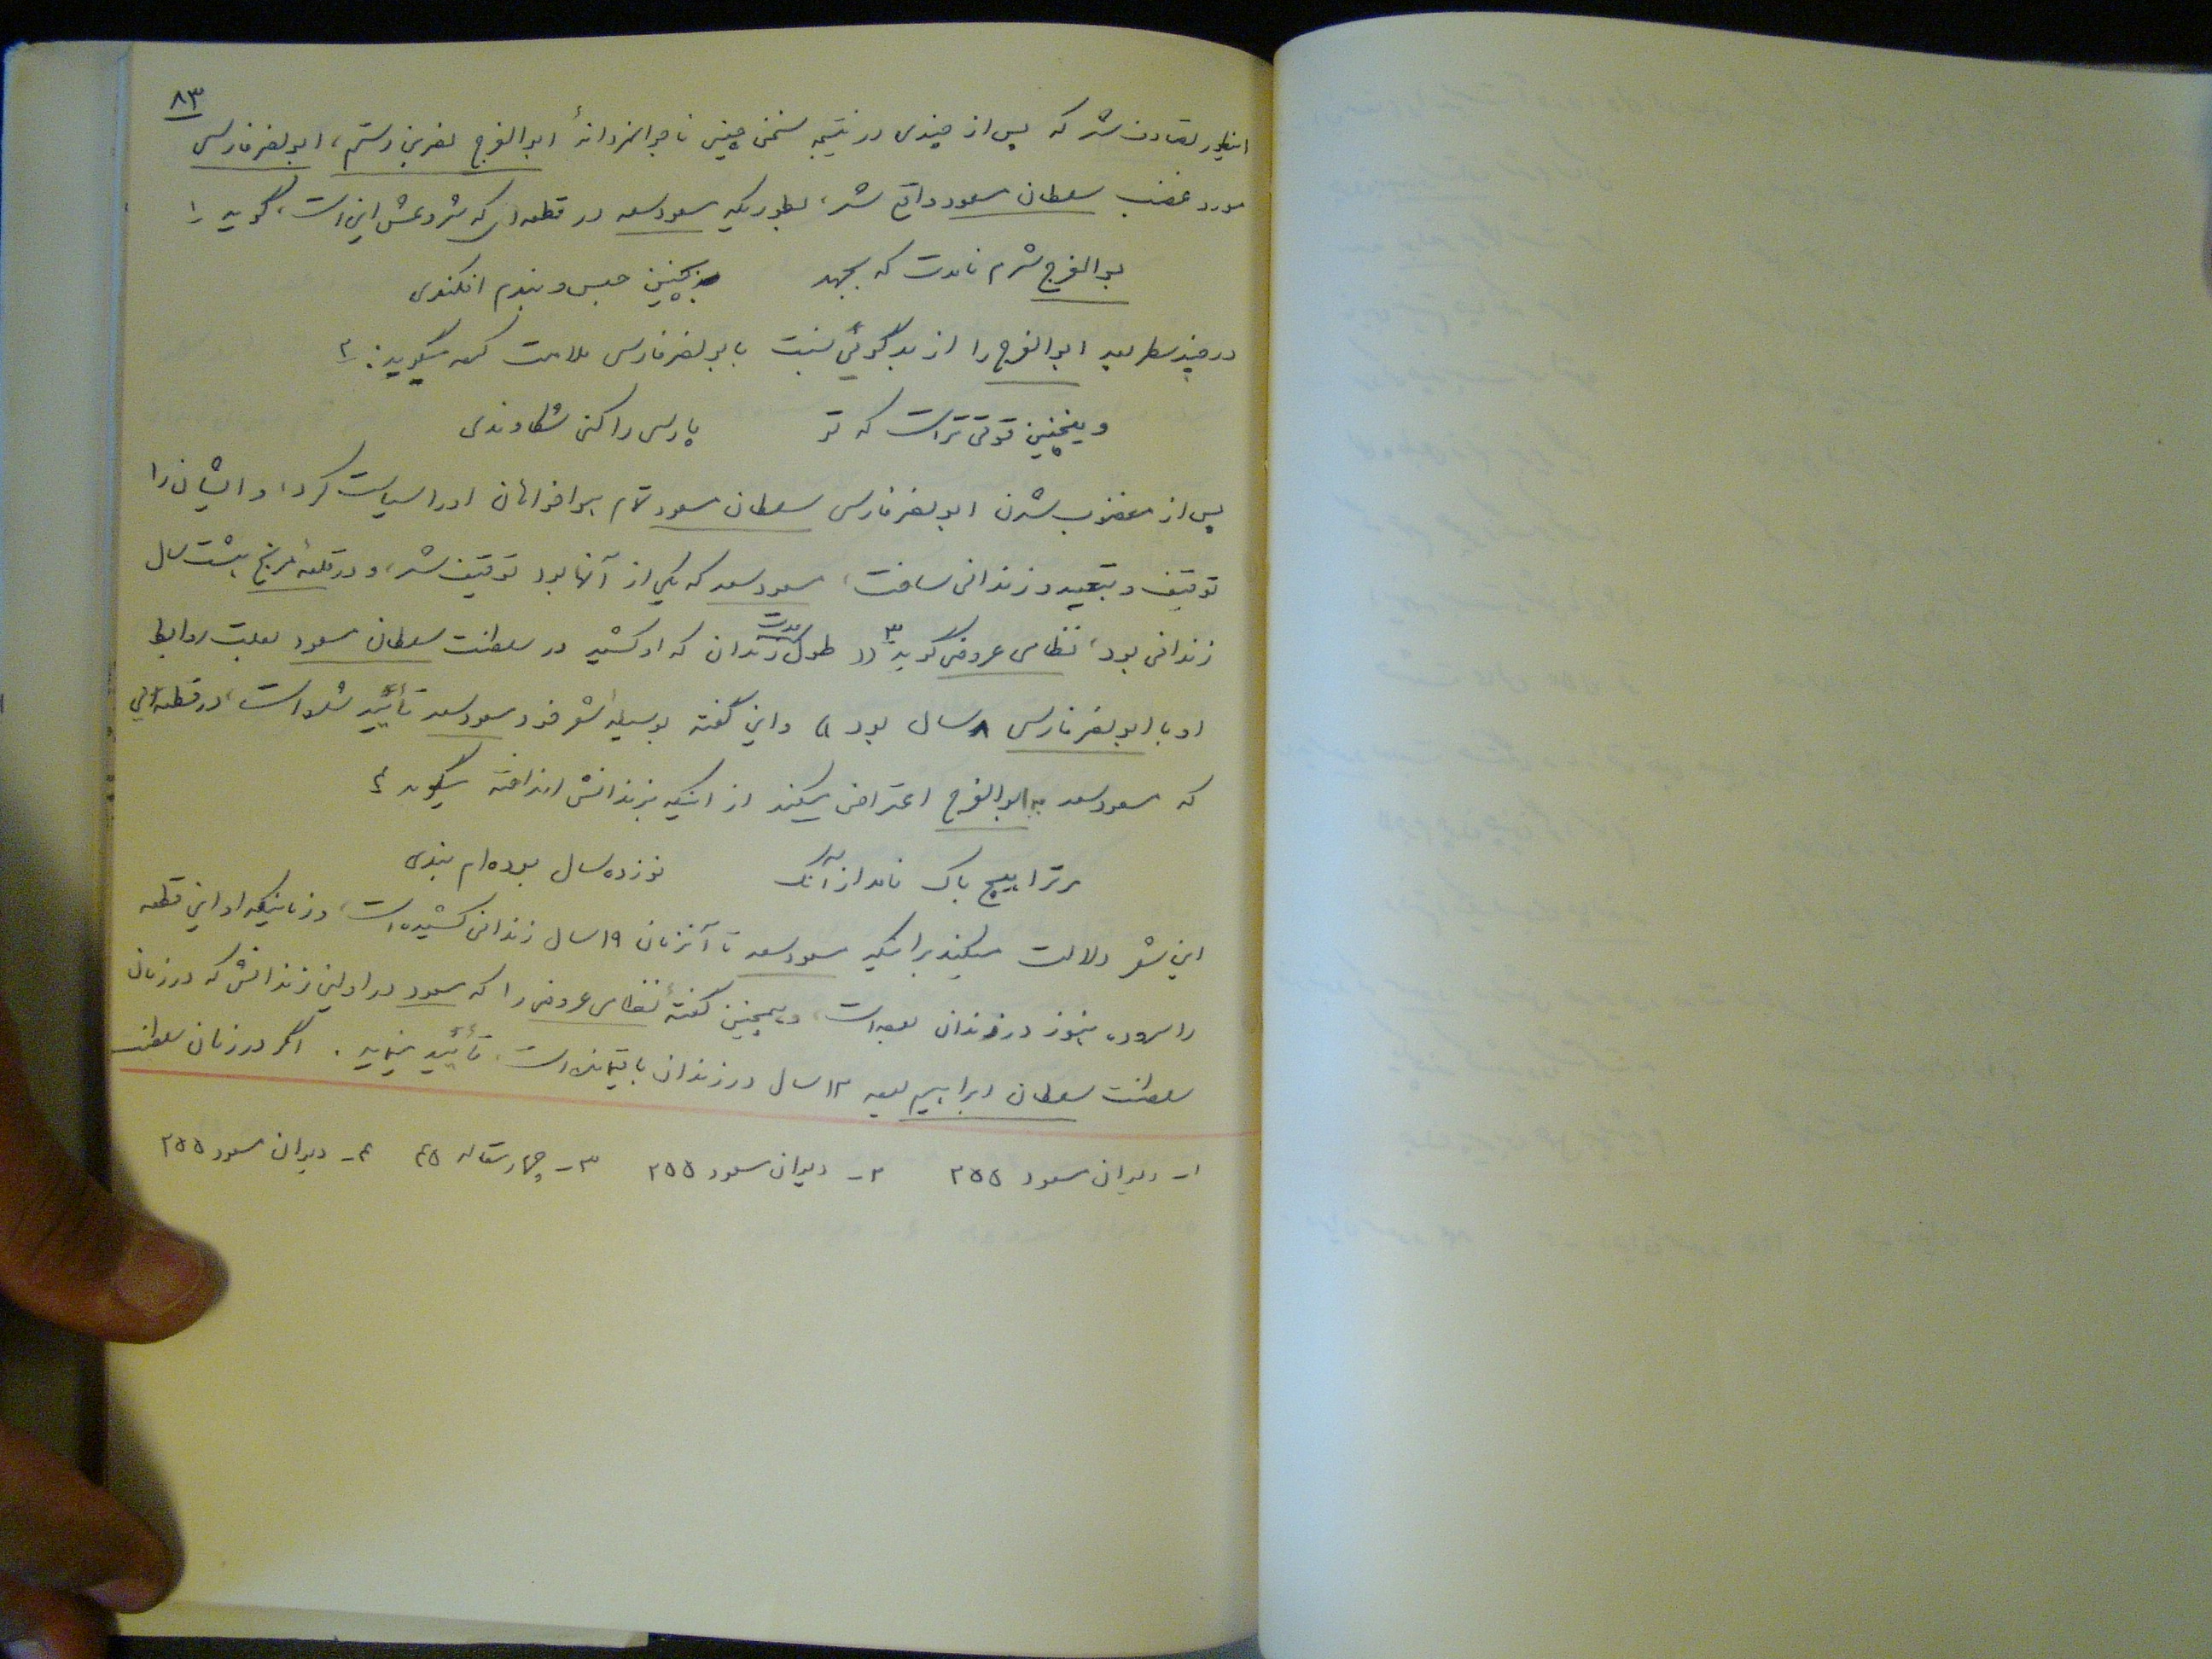 ۸۳
اینطور تصادف شد که پس از چندی در نتیجه سخن چینی ناجوانمردانهٔ ابوالفرج نصربن رستم، ابونصر فارسی
مورد غضب سلطان مسعود واقع شد، بطوریکه مسعودسعد در قطعه‌ای که شروعش این است، گوید ۱
بوالفرج شرم نامدت که بجهد        بچنین حبس و بندم افکندی
در چند سطر بعد ابوالفرج را از بدگوئی نسبت بابونصر فارسی ملامت کرده میگوید: ۲
وینچنین قوتی تراست که تو        پارسی را کنی شکاوندی
پس از مغضوب شدن ابونصر فارسی سلطان مسعود تمام هواخواهان او را سیاست کرد، و ایشان را
توقیف و تبعید و زندانی ساخت، مسعودسعد که یکی از آنها بود توقیف شد، و در قلعهٔ مرنج هشت سال
زندانی بود، نظامی عروضی گوید ۳ (( طول مدت زندان که او کشید در سلطنت سلطان مسعود بعلت روابط
او با ابونصر فارسی ۸ سال بود )) و این گفته بوسیلهٔ شعر خود مسعودسعد تأیید شده است، در قطعه‌ای
که مسعودسعد به ابوالفرج اعتراض میکند از اینکه بزندانش انداخته میگوید ۴
مر ترا هیچ باک نامد از آنک        نوزده سال بوده‌ام بندی
این شعر دلالت میکند براینکه مسعودسعد تا آنزمان ۱۹ سال زندانی کشیده است، و زمانیکه او این قطعه
را سروده هنوز در زندان بوده است، و همچنین گفتهٔ نظامی عروضی را که مسعود در اولین زندانش که در زمان
سلطنت سلطان ابراهیم بوده ۱۲ سال در زندان باقیمانده است، تأیید مینماید . اگر در زمان سلطنت
۱- دیوان مسعود ۲۵۵    ۲- دیوان مسعود ۲۵۵    ۳- چهارمقاله ۴۵    ۴- دیوان مسعود ۲۵۵